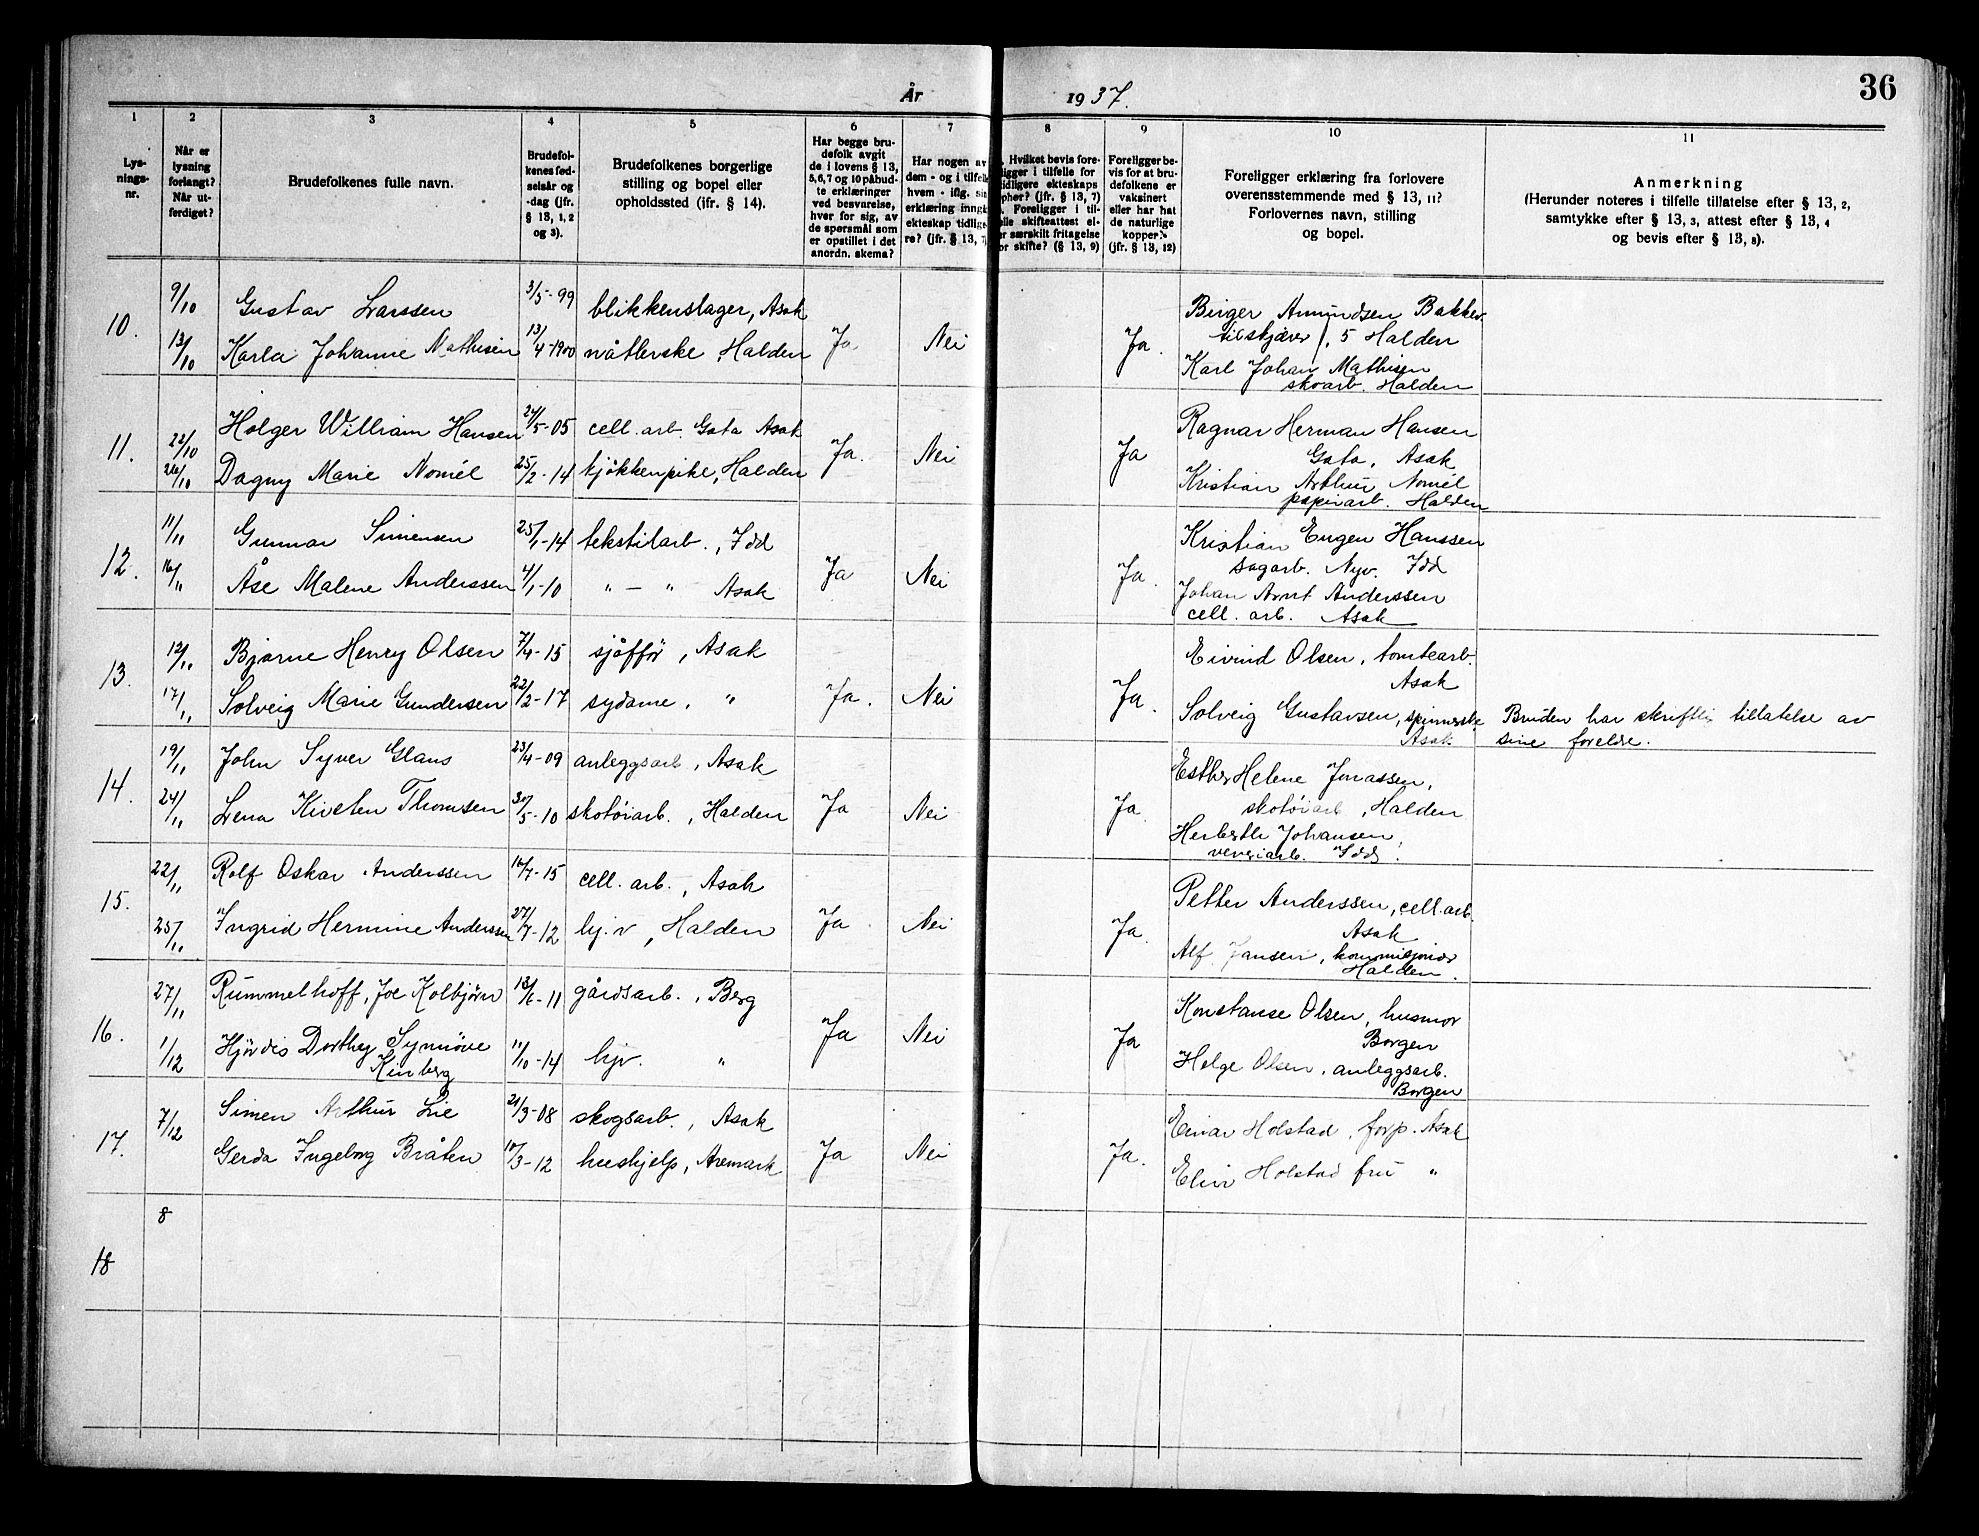 36
År 1937.
1 2 3 4 5 6 7 8 9 10 11
Lys-
nings-
nr.
Når er
lysning
forlangt?
Når ut-
ferdiget?
Brudefolkenes fulle navn.
Brudefol-
kenes fød-
selsår og
-dag (jfr.
§ 13, 1, 2
og 3).
Brudefolkenes borgerlige
stilling og bopel eller
opholdssted (ifr. § 14).
Har begge bru-
defolk avgit
de i lovens § 13,
5, 6, 7 og 10 påbud-
te erklæringer
ved besvarelse,
hver for sig, av
de spørsmål som
er opstillet i det
anordn. skema?
Har nogen av
dem - og i tilfelle
hvem - iflg. sin
erklæring inngå
ekteskap tidlige
re? (jfr. § 13, 7)
. Hvilket bevis fore-
ligger i tilfelle for
tidligere ekteskaps
ophør? (jfr. § 13, 7)
. Foreligger i til-
elle skifteattest el-
er særskilt fritagelse
or skifte? (§ 13, 9)
Foreligger be-
vis for at bru-
defolkene er
vaksinert
eller har hat
de naturlige
kopper?
(jfr. § 13, 12)
Foreligger erklæring fra forlovere
overensstemmende med § 13, 11?
Forlovernes navn, stilling
og bopel.
Anmerkning
(Herunder noteres i tilfelle tillatelse efter § 13, 2,
samtykke efter § 13, 3, attest efter § 13, 4
og bevis efter § 13, 8).
10. 9/10 Gustav Larssen 3/5-99 blikkenslager, Asak
13/10 Karla Johanne Mathisen 13/4-1900 nåtlerske, Halden Ja Nei Ja.
Birger Amundsen Bakke
tilskjærer, 5 Halden
Karl Johan Mathisen
skoarb. Halden
11. 22/10 Holger William Hansen 24/5-05 cell. arb. Gata Asak
26/10 Dagny Marie Nomél 25/2-14 kjøkkenpike, Halden Ja. Nei Ja
Ragnar Herman Hansen
Gata, Asak
Kristian Arthur Nomél
papirarb. Halden
12. 11/11 Gunnar Simensen 25/1-14 tekstilarb., Idd
16/11 Åse Malene Anderssen 4/1-10 " — " Asak Ja Nei Ja.
Kristian Eugen Hanssen
sagarb. Nyv. Idd
Johan Arnt Anderssen
cell. arb. Asak
13. 12/11 Bjarne Henry Olsen 7/4-15 sjåffør, Asak
17/11 Solveig Marie Gundersen 22/2-17 sydame, " Ja. Nei Ja.
Eivind Olsen, tomtearb.
Asak
Solveig Gustavsen, spinnerske
Asak
Bruden har skriftlig tillatelse av
sine foreldre.
14. 19/11 John Syver Glans 23/4-09 anleggsarb, Asak
24/11 Lena Kirsten Thomsen 30/5-10 skotøiarb., Halden Ja Nei Ja
Esther Helene Jonassen,
skotøiarb, Halden
Herberth Johansen,
veveriarb. Idd.
15. 22/11 Rolf Oskar Anderssen 16/7-15 cell. arb., Asak
25/11 Ingrid Hermine Anderssen 27/7-12 hj. v, Halden Ja Nei Ja.
Petter Anderssen, cell. arb.
Asak
Alf Jansen, kommisjonær
Halden.
16. 27/11 Rummelhoff, Joe Kolbjørn 18/6-11 gårdsarb., Berg
1/12 Hjørdis Dorthey Synnøve
Kinberg 11/10-14 hjv. " Ja Nei Ja
Konstanse Olsen, husmor
Borgen
Helge Olsen, anleggsarb.
Borgen
17. 7/12 Simen Arthur Lie 21/3-08 skogsarb., Asak
Gerda Ingeborg Bråten 10/3-12 hushjelp, Aremark Ja Nei Ja.
Einar Holstad, forp. Asak
Elin Holstad fru "
8
18